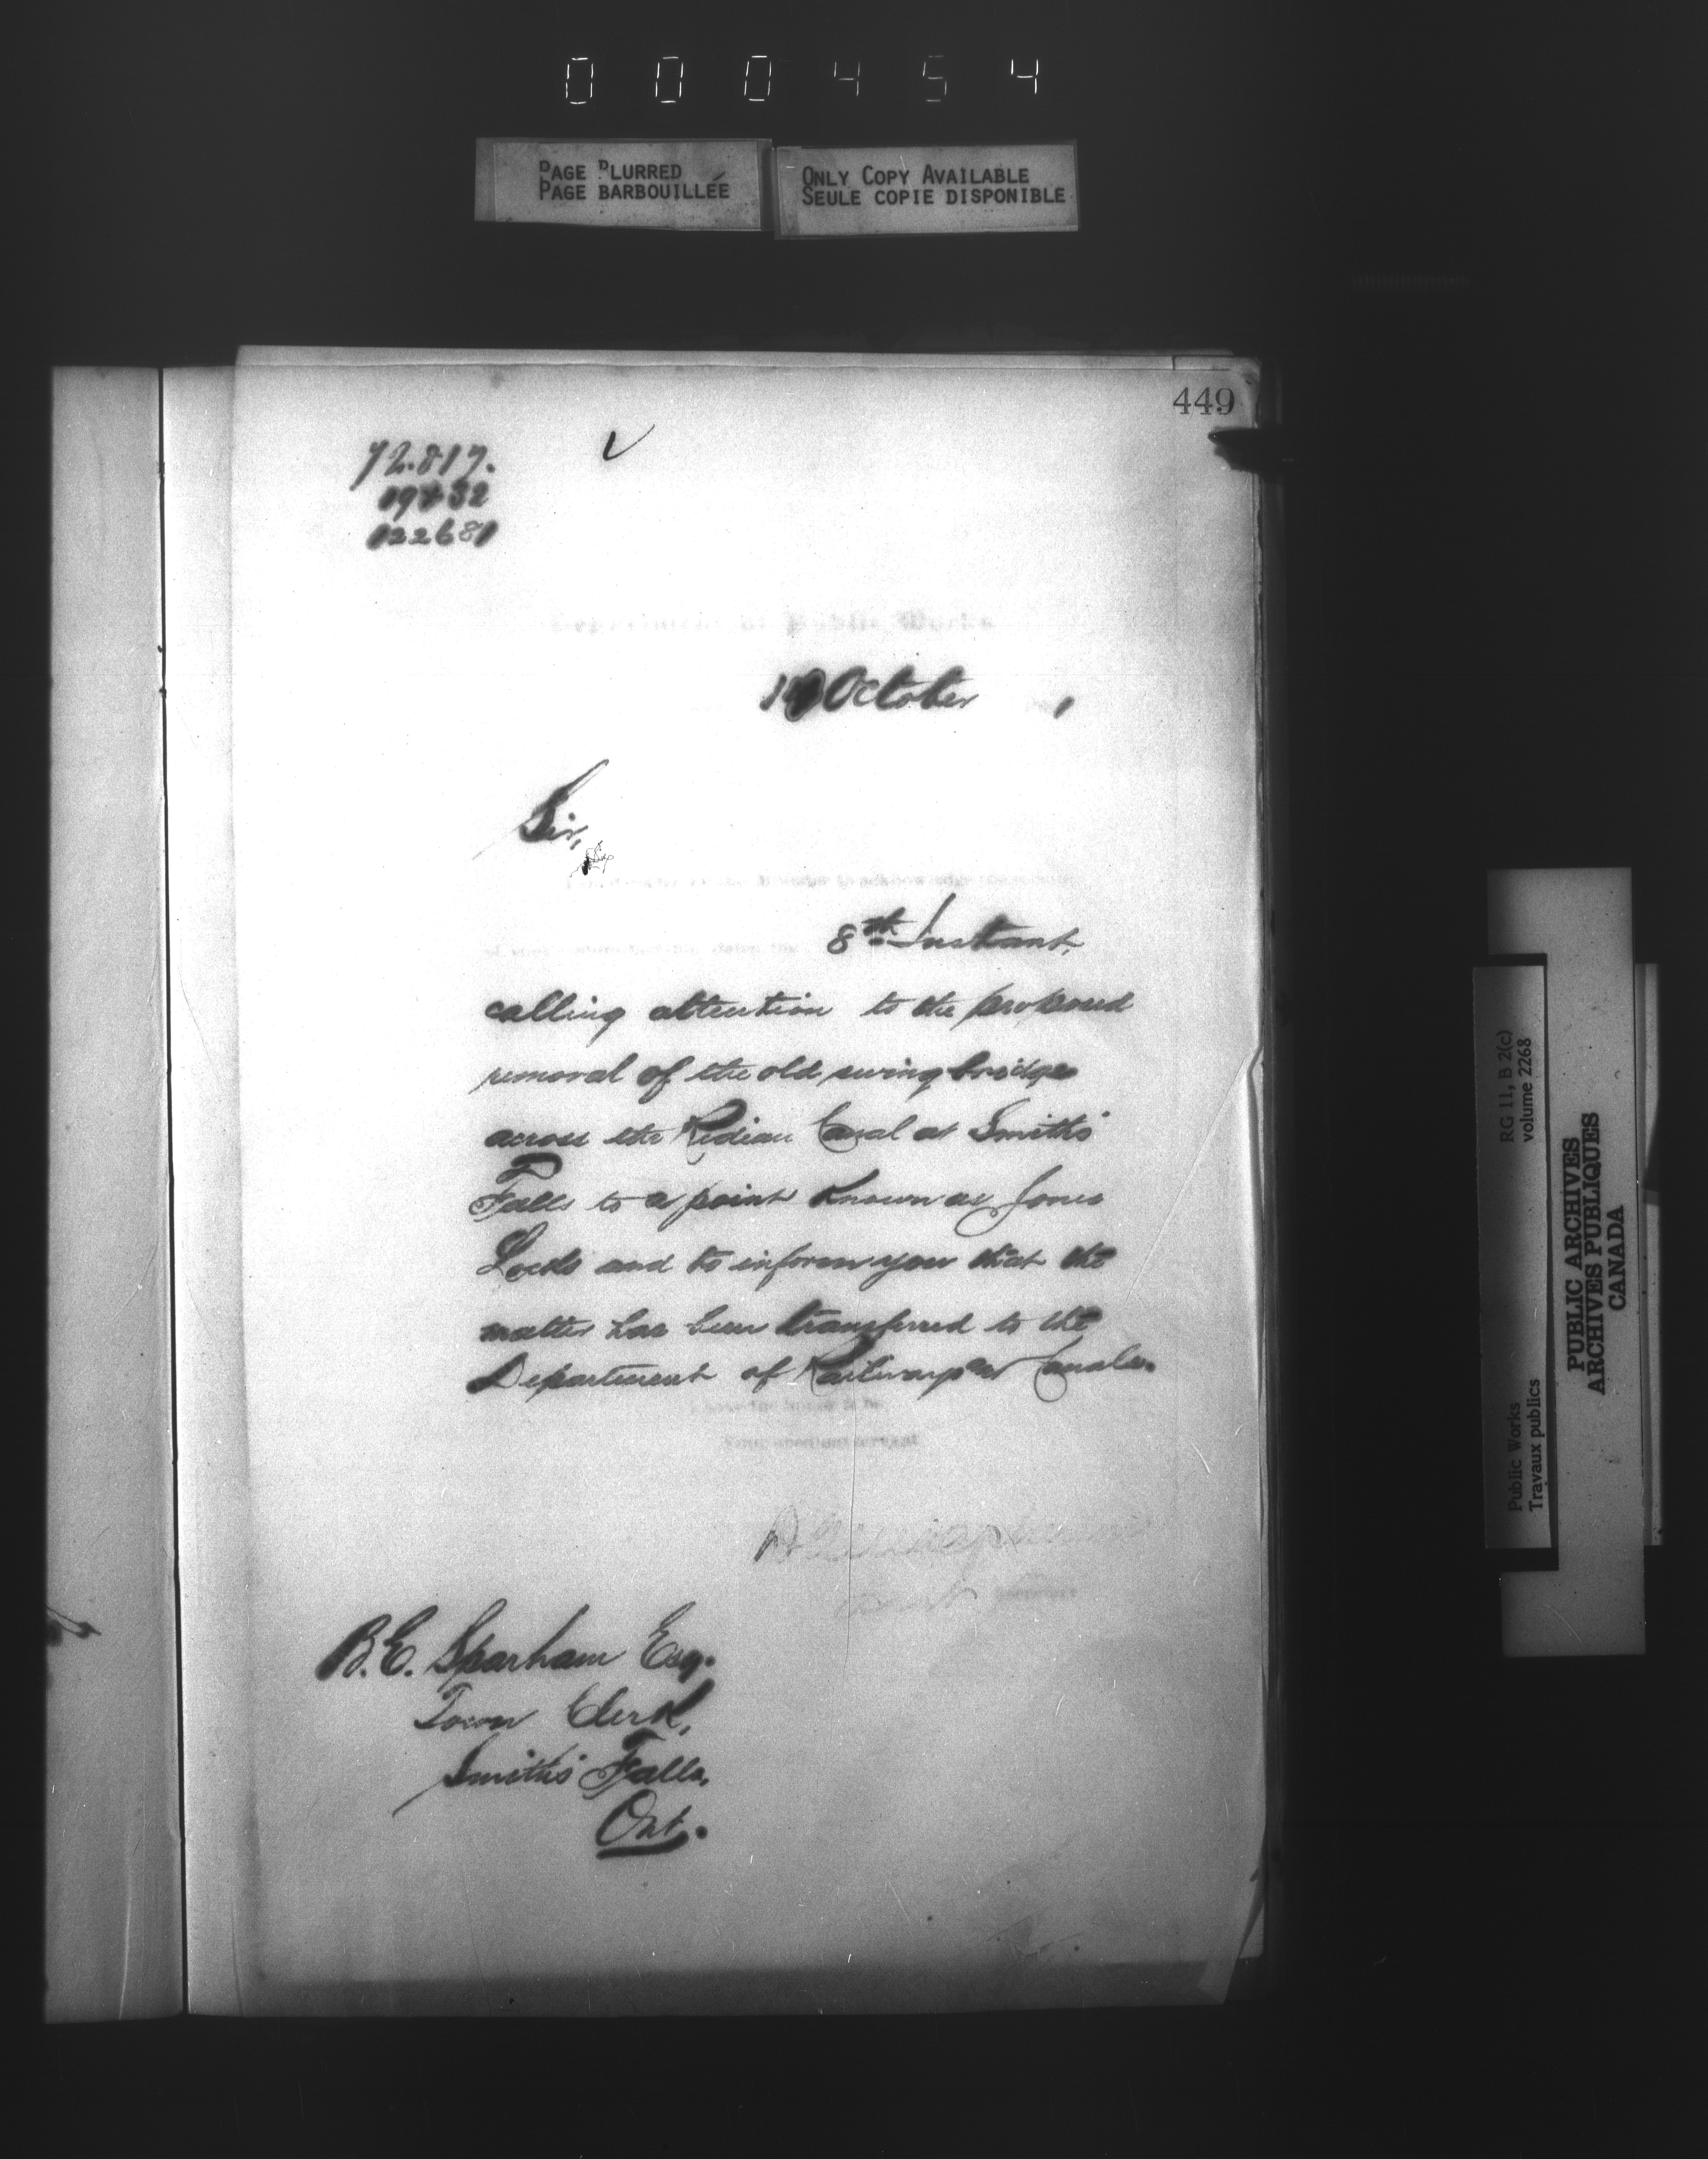 000454
PAGE BLURRED
PAGE BARBOUILLÉE
ONLY COPY AVAILABLE
SEULE COPIE DISPONIBLE
449
72.817.
122681
Department of Public Works
October
Sir,
8th Instant,
calling attention to the proposed
removal of the old swing bridge
across the Rideau Canal at Smiths'
Falls to a point known as Jones
Locks and to inform you that the
matter has been transferred to the
Department of Railways and Canals.
I have the honor to be
Your obedient servant
Secretary
B.E. Sparham Esq.
Town Clerk,
Smiths' Falls,
Ont.
RG 11, B 2(c)
volume 2268
Public Works
Travaux publics
PUBLIC ARCHIVES
ARCHIVES PUBLIQUES
CANADA